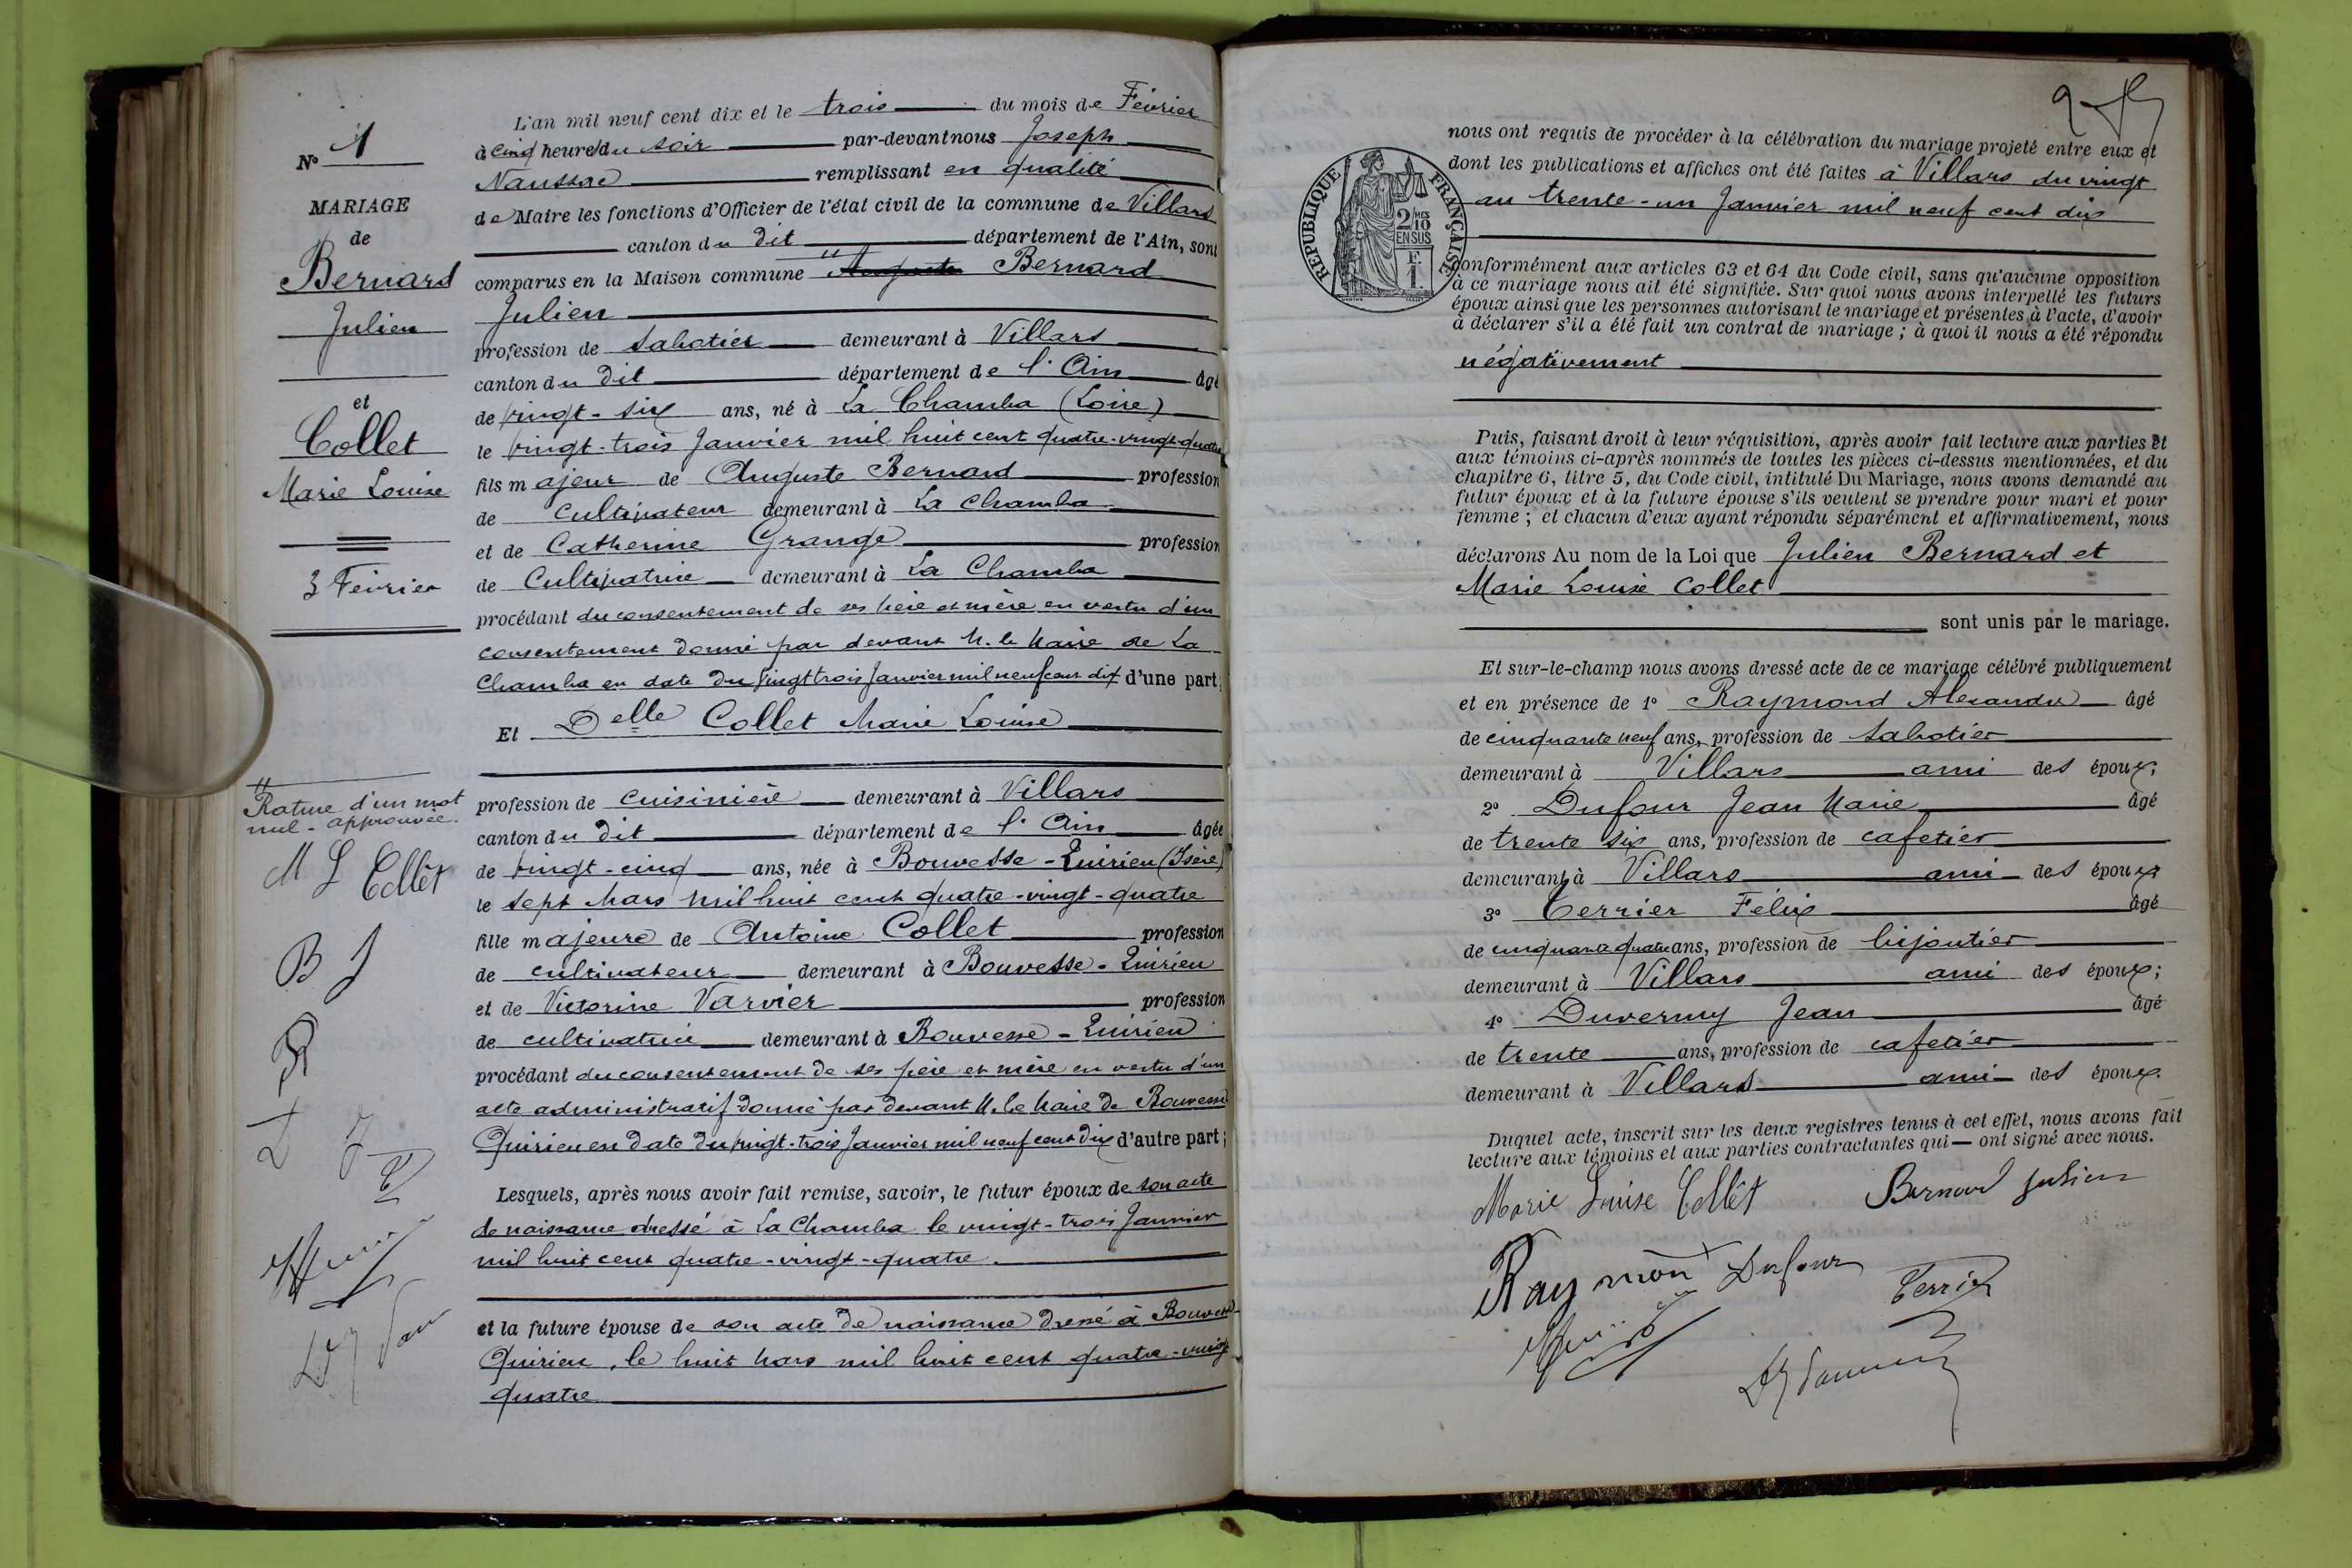 N° 1
MARIAGE
de
Bernard
Julien
et
Collet
Marie Louise
3 Février
Rature d'un mot
nul - approuvée.
M L Collet
B J
R
D J
L'an mil neuf cent dix et le trois du mois de Février
à cinq heures du soir par-devant nous Joseph
remplissant en qualité
de Maire les fonctions d'Officier de l'état civil de la commune de Villars
canton du dit département de l'Ain, sont
comparus en la Maison commune " Auguste Bernard
Julien
profession de sabotier demeurant à Villars
canton du dit département de l'Ain âgé
de vingt-six ans, né à La Chamba (Loire)
le vingt-trois Janvier mil huit cent quatre-vingt-quatre
fils majeur de Auguste Bernard profession
de cultivateur demeurant à La Chamba
et de Catherine Grange profession
de Cultivatrice demeurant à La Chamba
procédant du consentement de ses père et mère en vertu d'un
consentement donné par devant M. le Maire de La
Chamba en date du vingt trois Janvier mil neuf cent dix d'une part;
Et Delle Collet Marie Louise
profession de cuisinière demeurant à Villars
canton du dit département de l'Ain âgée
de vingt-cinq ans, née à Bouvesse-Quirieu (Isère)
le sept Mars mil huit cent quatre-vingt-quatre
fille majeure de Antoine Collet profession
de cultivateur demeurant à Bouvesse-Quirieu
et de Victorine Varvier profession
de cultivatrice demeurant à Bouvesse-Quirieu
procédant du consentement de ses père et mère en vertu d'un
acte administratif donné par devant M. le Maire de Bouvesse
Quirieu en date du vingt-trois Janvier mil neuf cent dix d'autre part;
Lesquels, après nous avoir fait remise, savoir, le futur époux de son acte
de naissance dressé à La Chamba le vingt-trois Janvier
mil huit cent quatre-vingt-quatre.
et la future épouse de son acte de naissance dressé à Bouvesse-
Quirieu, le huit Mars mil huit cent quatre-vingt
quatre
nous ont requis de procéder à la célébration du mariage projeté entre eux et
dont les publications et affiches ont été faites à Villars du vingt
au trente-un Janvier mil neuf cent dix
RÉPUBLIQUE FRANÇAISE
2/10 MES
EN SUS
F.
1.
conformément aux articles 63 et 64 du Code civil, sans qu'aucune opposition
à ce mariage nous ait été signifiée. Sur quoi nous avons interpellé les futurs
époux ainsi que les personnes autorisant le mariage et présentes à l'acte, d'avoir
à déclarer s'il a été fait un contrat de mariage ; à quoi il nous a été répondu
négativement
Puis, faisant droit à leur réquisition, après avoir fait lecture aux parties et
aux témoins ci-après nommés de toutes les pièces ci-dessus mentionnées, et du
chapitre 6, titre 5, du Code civil, intitulé Du Mariage, nous avons demandé au
futur époux et à la future épouse s'ils veulent se prendre pour mari et pour
femme ; et chacun d'eux ayant répondu séparément et affirmativement, nous
déclarons Au nom de la Loi que Julien Bernard et
Marie Louise Collet
sont unis par le mariage.
Et sur-le-champ nous avons dressé acte de ce mariage célébré publiquement
et en présence de 1° Raymond Alexandre âgé
de cinquante neuf ans, profession de sabotier
demeurant à Villars ami des époux;
2° Dufour Jean Marie âgé
de trente six ans, profession de cafetier
demeurant à Villars ami des époux
3° Terrier Félix âgé
de cinquante quatre ans, profession de bijoutier
demeurant à Villars ami des époux;
4° Duvernay Jean âgé
de trente ans, profession de cafetier
demeurant à Villars ami des époux.
Duquel acte, inscrit sur les deux registres tenus à cet effet, nous avons fait
lecture aux témoins et aux parties contractantes qui — ont signé avec nous.
Marie Louise Collet Bernard Julien
Raymond Dufour Terrier